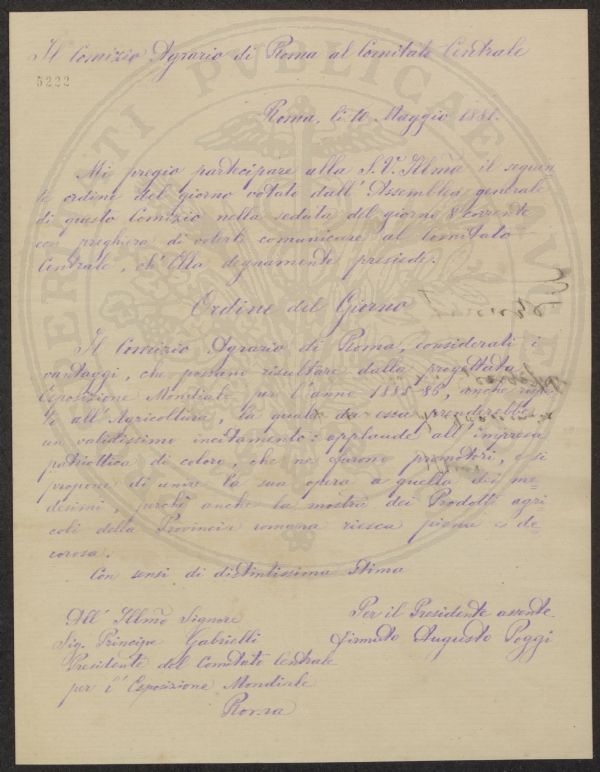 Il Comizio Agrario di Roma al Comitato Centrale
5222
Roma, li 10 Maggio 1881.
Mi pregio partecipare alla S. Vª. Illma il seguen
te ordine del giorno votato dall'Assemblea generale
di questo Comizio nella seduta del giorno 8 corrente
con preghiera di volerlo comunicare al Comitato
Centrale, ch'Ella degnamente presiede.
Ordine del Giorno
Il Comizio Agrario di Roma, considerati i
vantaggi, che possono risultare dalla progettata
Esposizione Mondiale per l'anno 1885-86, anche rispet
to all'Agricoltura, la quale da essa prenderebbe
un validissimo incitamento: applaude all'impresa
patriottica di coloro, che ne furono promotori, e si
propone di unire la sua opera a quella dei me-
desimi, perchè anche la mostra dei Prodotti agri-
coli della Provincia romana riesca piena e de-
corosa.
Con sensi di distintissima stima
All'Illmo Signore
Sig. Principe Gabrielli
Presidente del Comitato Centrale
per l'Esposizione Mondiale
Roma
Per il Presidente assente
firmato Augusto Poggi